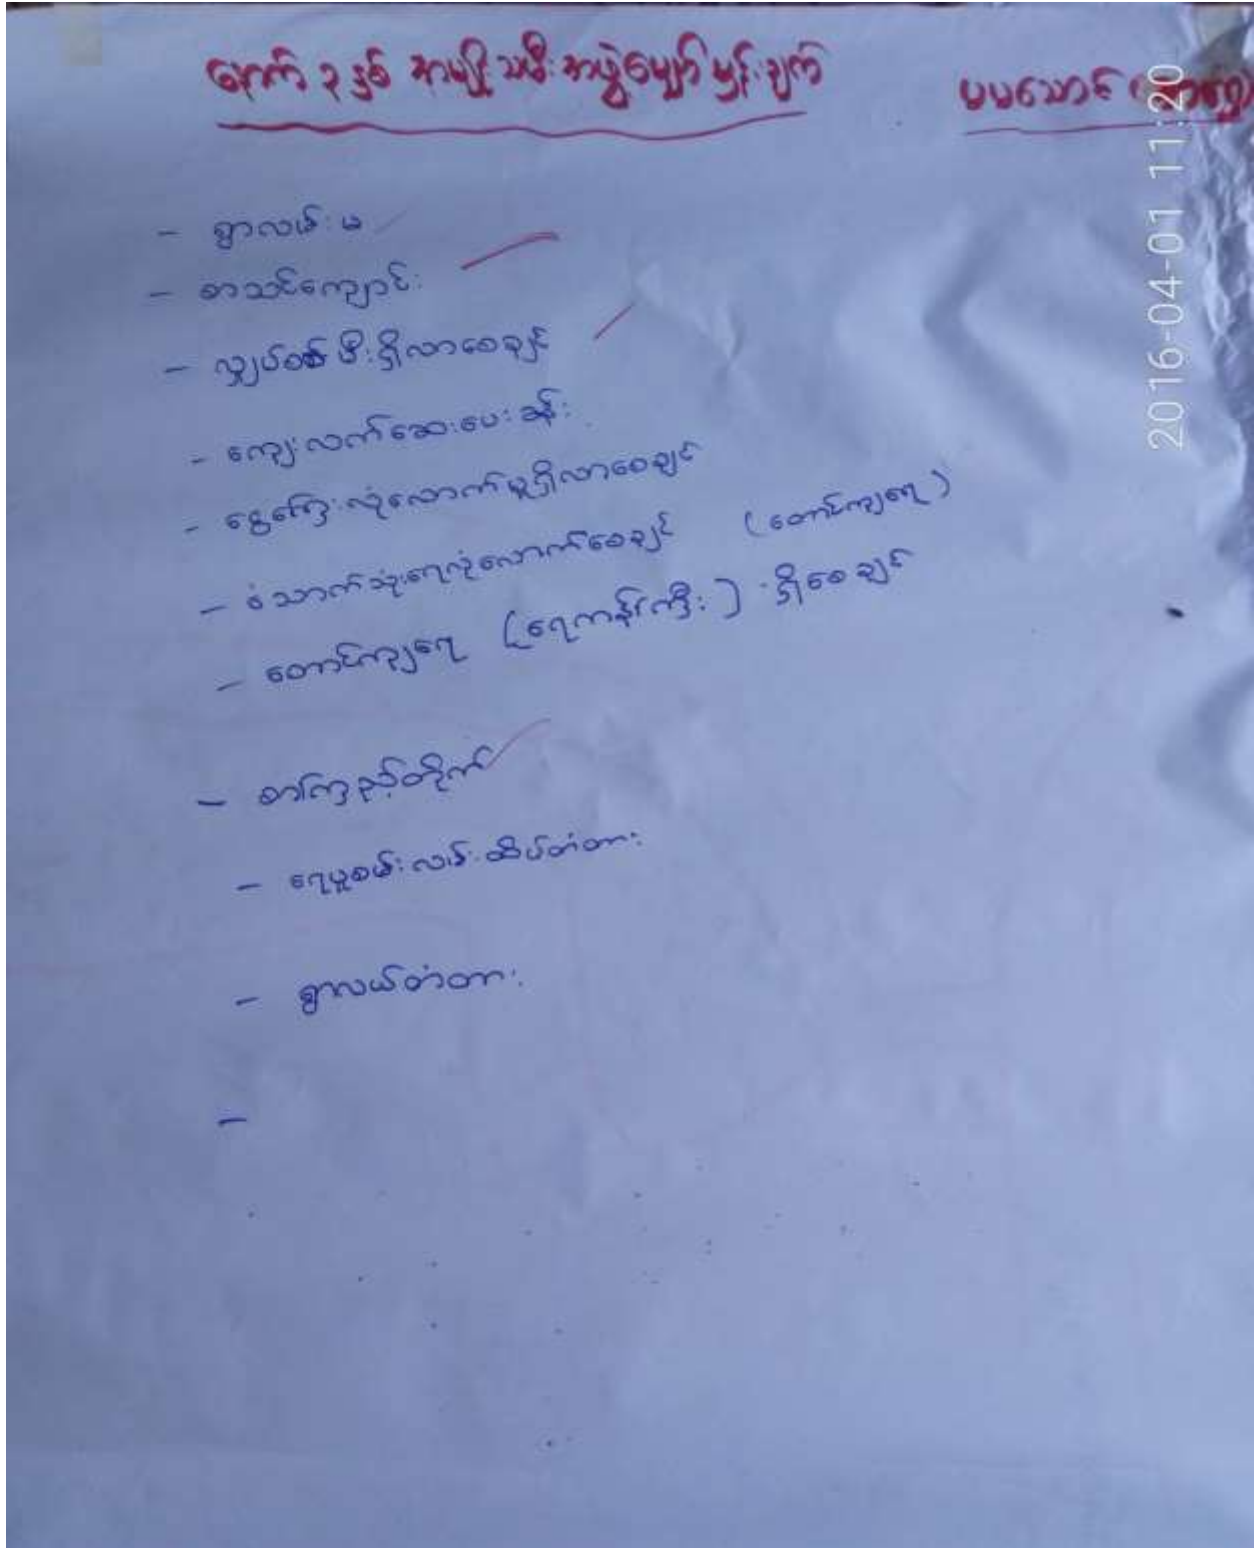 နောက် ၃ နှစ် အမျိုးသမီးအဖွဲ့မျှော်မှန်းချက်
မမသောင်
2016-04-01 11:20
- ရွာလမ်းမ
- စာသင်ကျောင်း
- လျှပ်စစ်မီးရှိလာစေချင်
- ကျေးလက်ဆေးပေးခန်း
- ငွေကြေးလုံလောက်မှုရှိလာစေချင်
- စံသောက်သုံးရေလုံလောက်စေချင် (တောင်ကျရေ)
- တောင်ကျရေ (ရေကန်ကြီး) ရှိစေချင်
- စာကြည့်တိုက်
- ရေပူစမ်းလမ်းထိပ်တံတား
- ရွာလယ်တံတား
-